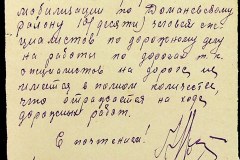 мобилизации по Доманевскому
району 10/десяти/ человек спе-
циалистов по дорожному делу
на работы по дорогам т.к.
специалистов на дороге не
имеется в полном количестве,
что отражается на ходе
дорожных работ.
С почтением!